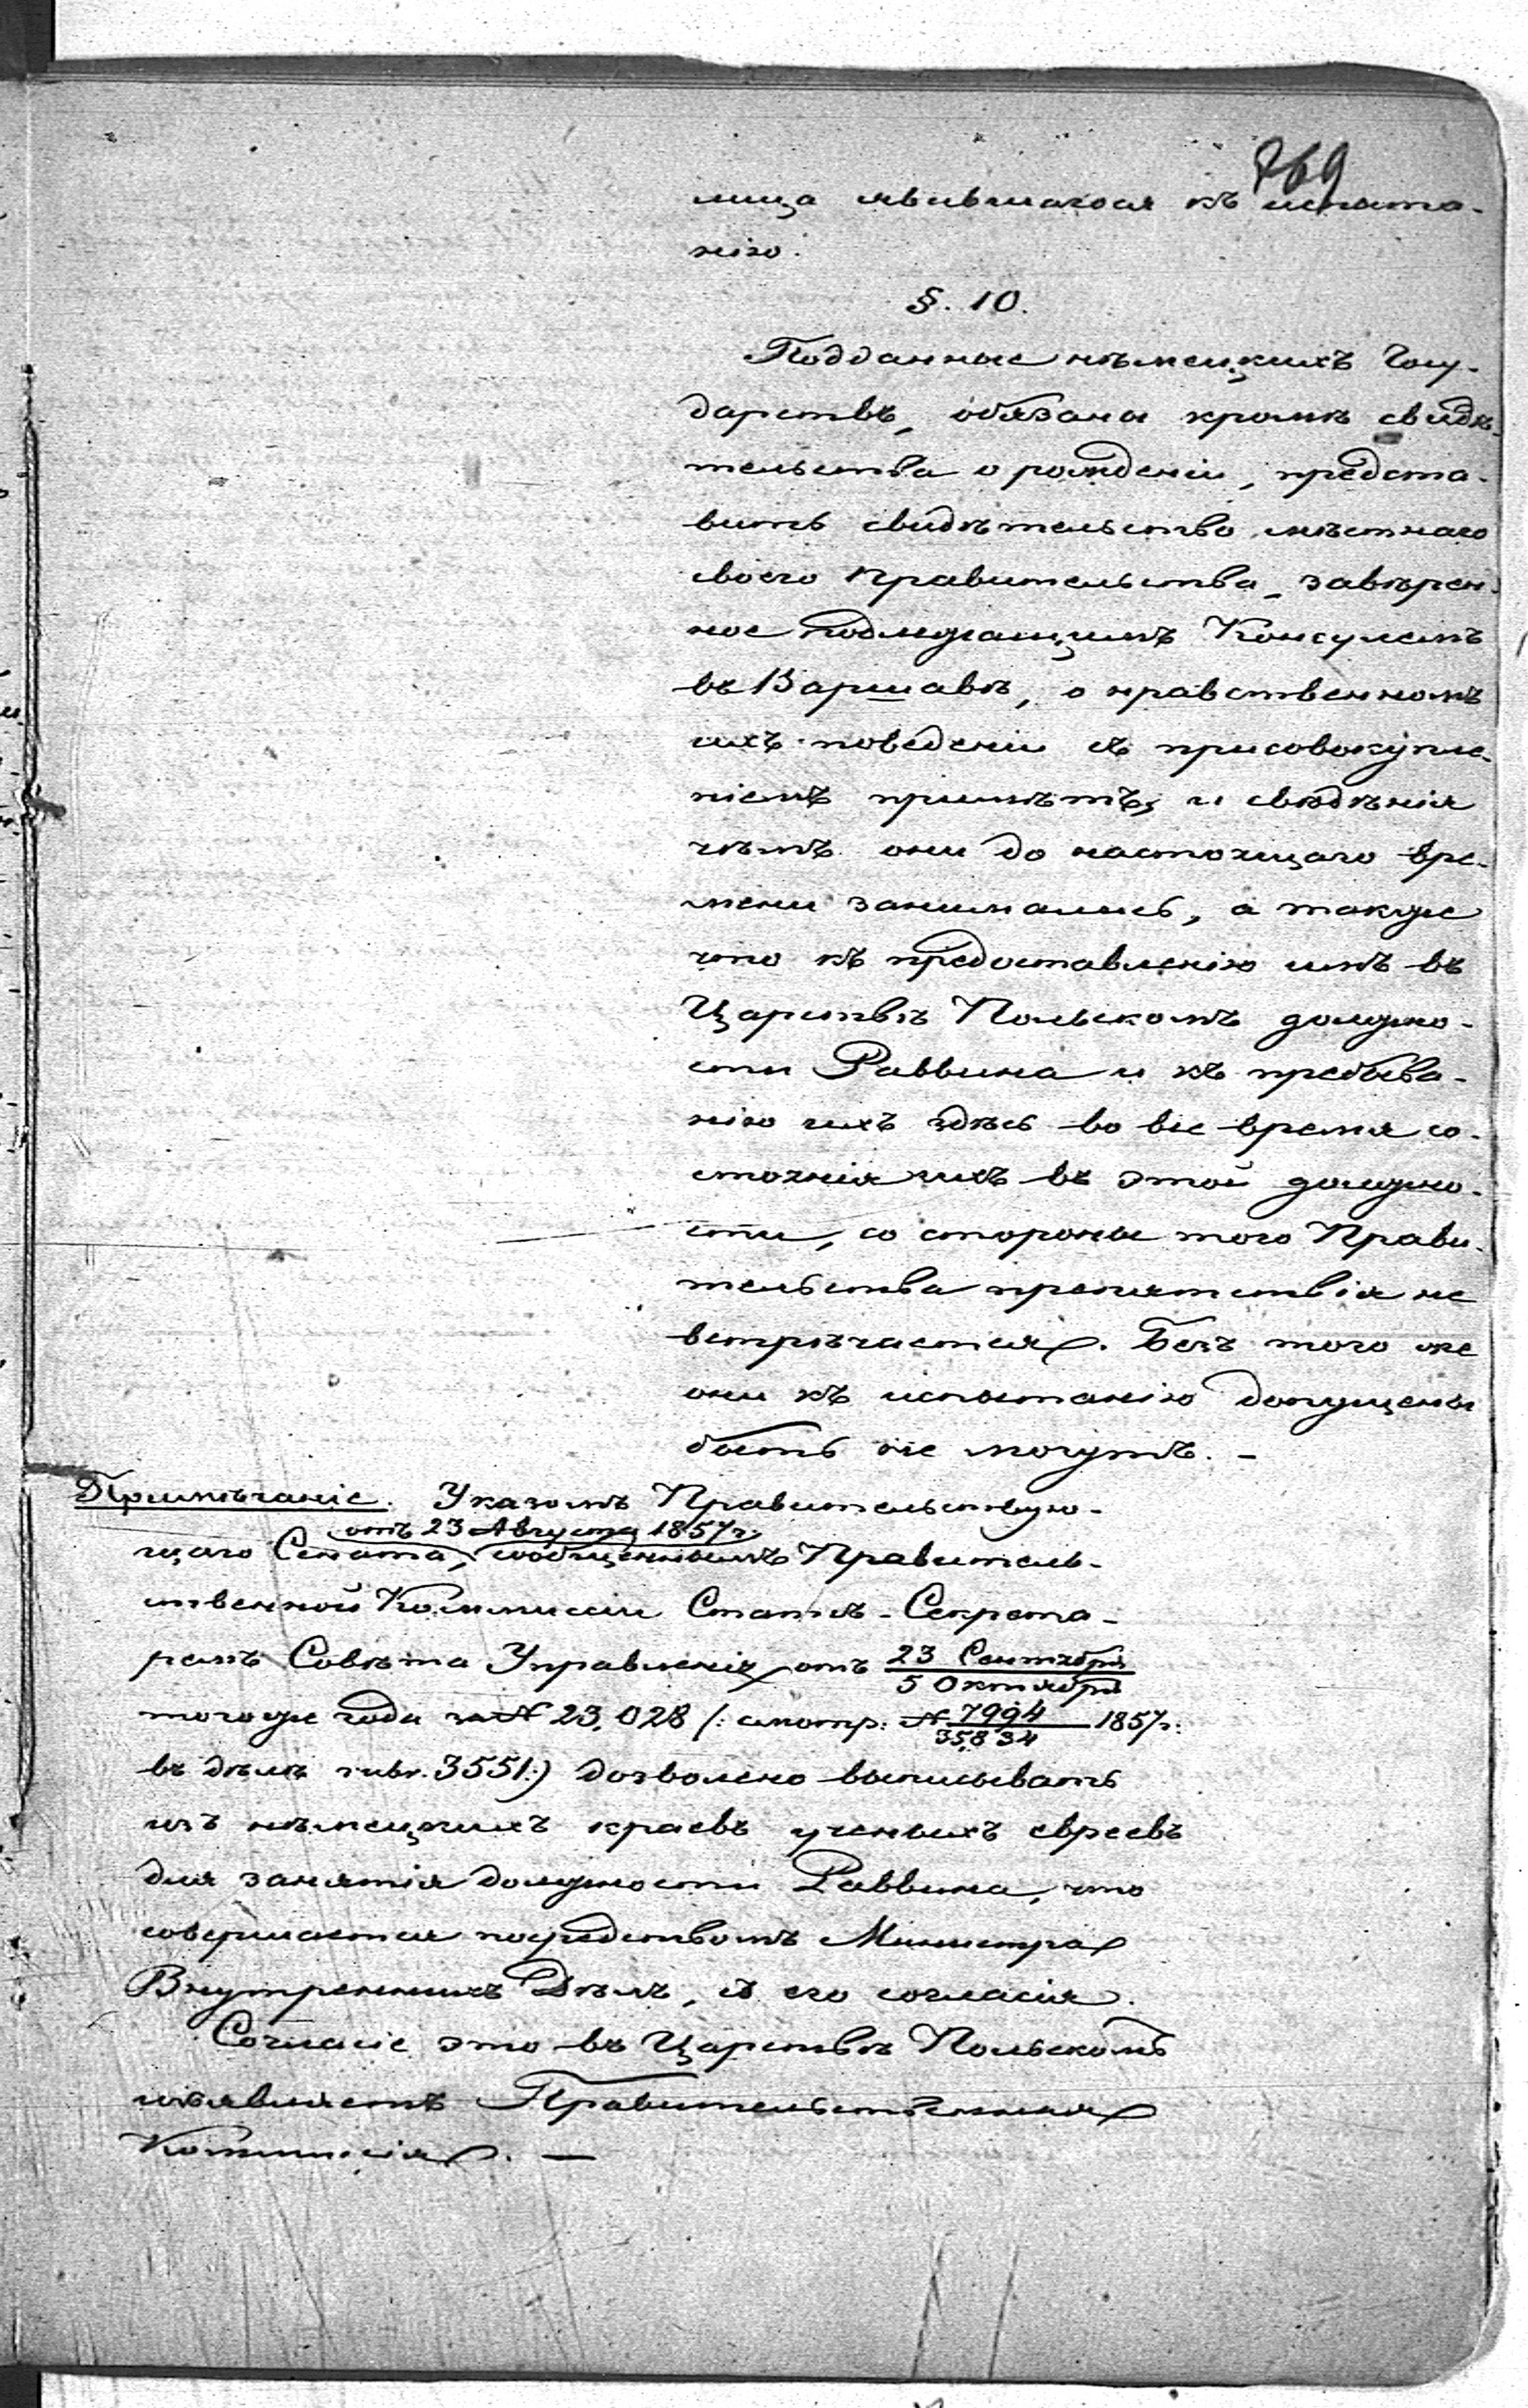 769
лица явившагося къ испыта-
нію.
§. 10.
Подданные нѣмецкихъ Госу-
дарствъ, обязаны кромѣ свидѣ-
тельства о рожденіи, предста-
вить свидѣтельство мѣстнаго
своего Правительства, завѣрен-
ное подлежащимъ Консулемъ
въ Варшавѣ, о нравственномъ
ихъ поведеніи съ присовокупле-
ніемъ примѣтъ, и свѣдѣнія
чѣмъ они до настоящаго вре-
мени занимались, а также
что къ предоставленію имъ въ
Царствѣ Польскомъ должно-
сти Раввина и къ пребыва-
нію ихъ здѣсь во все время со-
стоянія ихъ въ этой должно-
сти, со стороны того Прави-
тельства препятствія не
встрѣчается. Безъ того же
они къ испытанію допущены
быть не могутъ. -
Примѣчаніе. Указомъ Правительствую-
отъ 23 Августа 1857 г.
щаго Сената, сообщеннымъ Правитель-
ственной Коммисіи Статсъ-Секрета-
ремъ Совѣта Управленія отъ 23 Сентября / 5 Октября
того же года за N 23,028 /: смотр: N 7994 / 35,834 1857 г:
въ дѣлѣ 3551:) дозволено выписывать
изъ нѣмецкихъ краевъ ученыхъ евреевъ
для занятія должности Раввина, что
совершается посредствомъ Министра
Внутреннихъ Дѣлъ, съ его согласія.
Согласіе это въ Царствѣ Польскомъ
изъявляетъ Правительственная
Коммисія. —